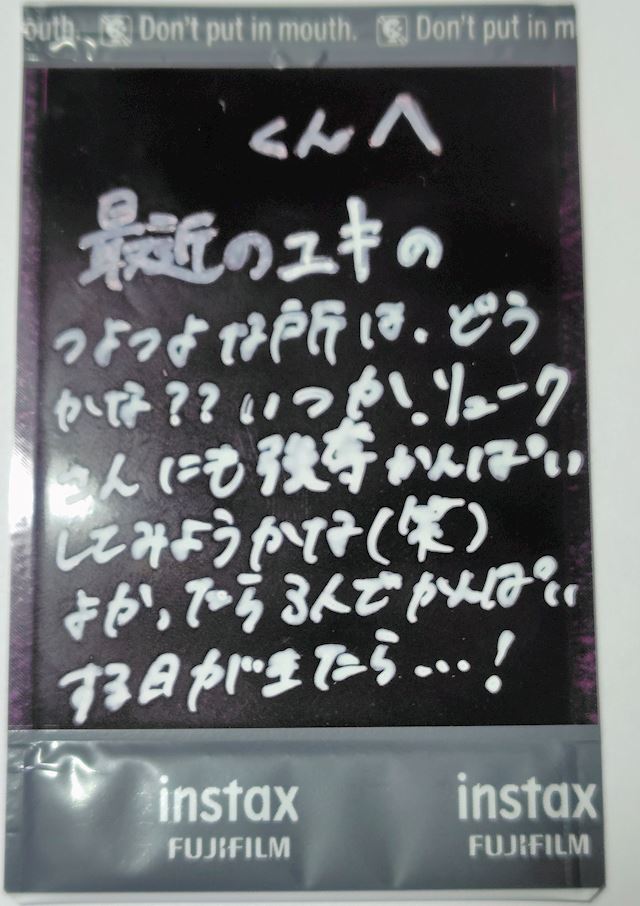 outh. Don't put in mouth. Don't put in m
くんへ
最近のユキの
つよつよな所は、どう
かな??いつか、リューク
さんにも強奪かんぱい
してみようかな(笑)
よかったら3人でかんぱい
する日が来たら…!
instax instax
FUJIFILM FUJIFILM